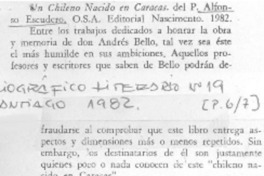 Un Chileno Nacido en Caracas. del P. Alfon-
so Escudero, O.S.A. Editorial Nascimento. 1982.
Entre los trabajos dedicados a honrar la obra
y memoria de don Andrés Bello, tal vez sea éste
el más humilde en sus ambiciones, Aquellos pro-
fesores y escritores que saben de Bello podrán de-
IOGRÁFICO Y LITERARIO Nº 19
ANTIAGO 1982. [P.6/7]
fraudarse al comprobar que este libro entrega as-
pectos y dimensiones más o menos repetidos. Sin
embargo, los destinatarios de él son justamente
quienes poco o nada conocen de este "chileno na-
cido en Caracas"